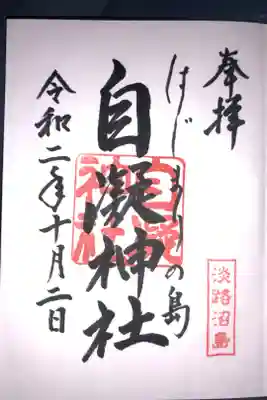 奉拝
はじまりの島
自凝神社
自凝神社
令和二年十月二日
淡路沼島